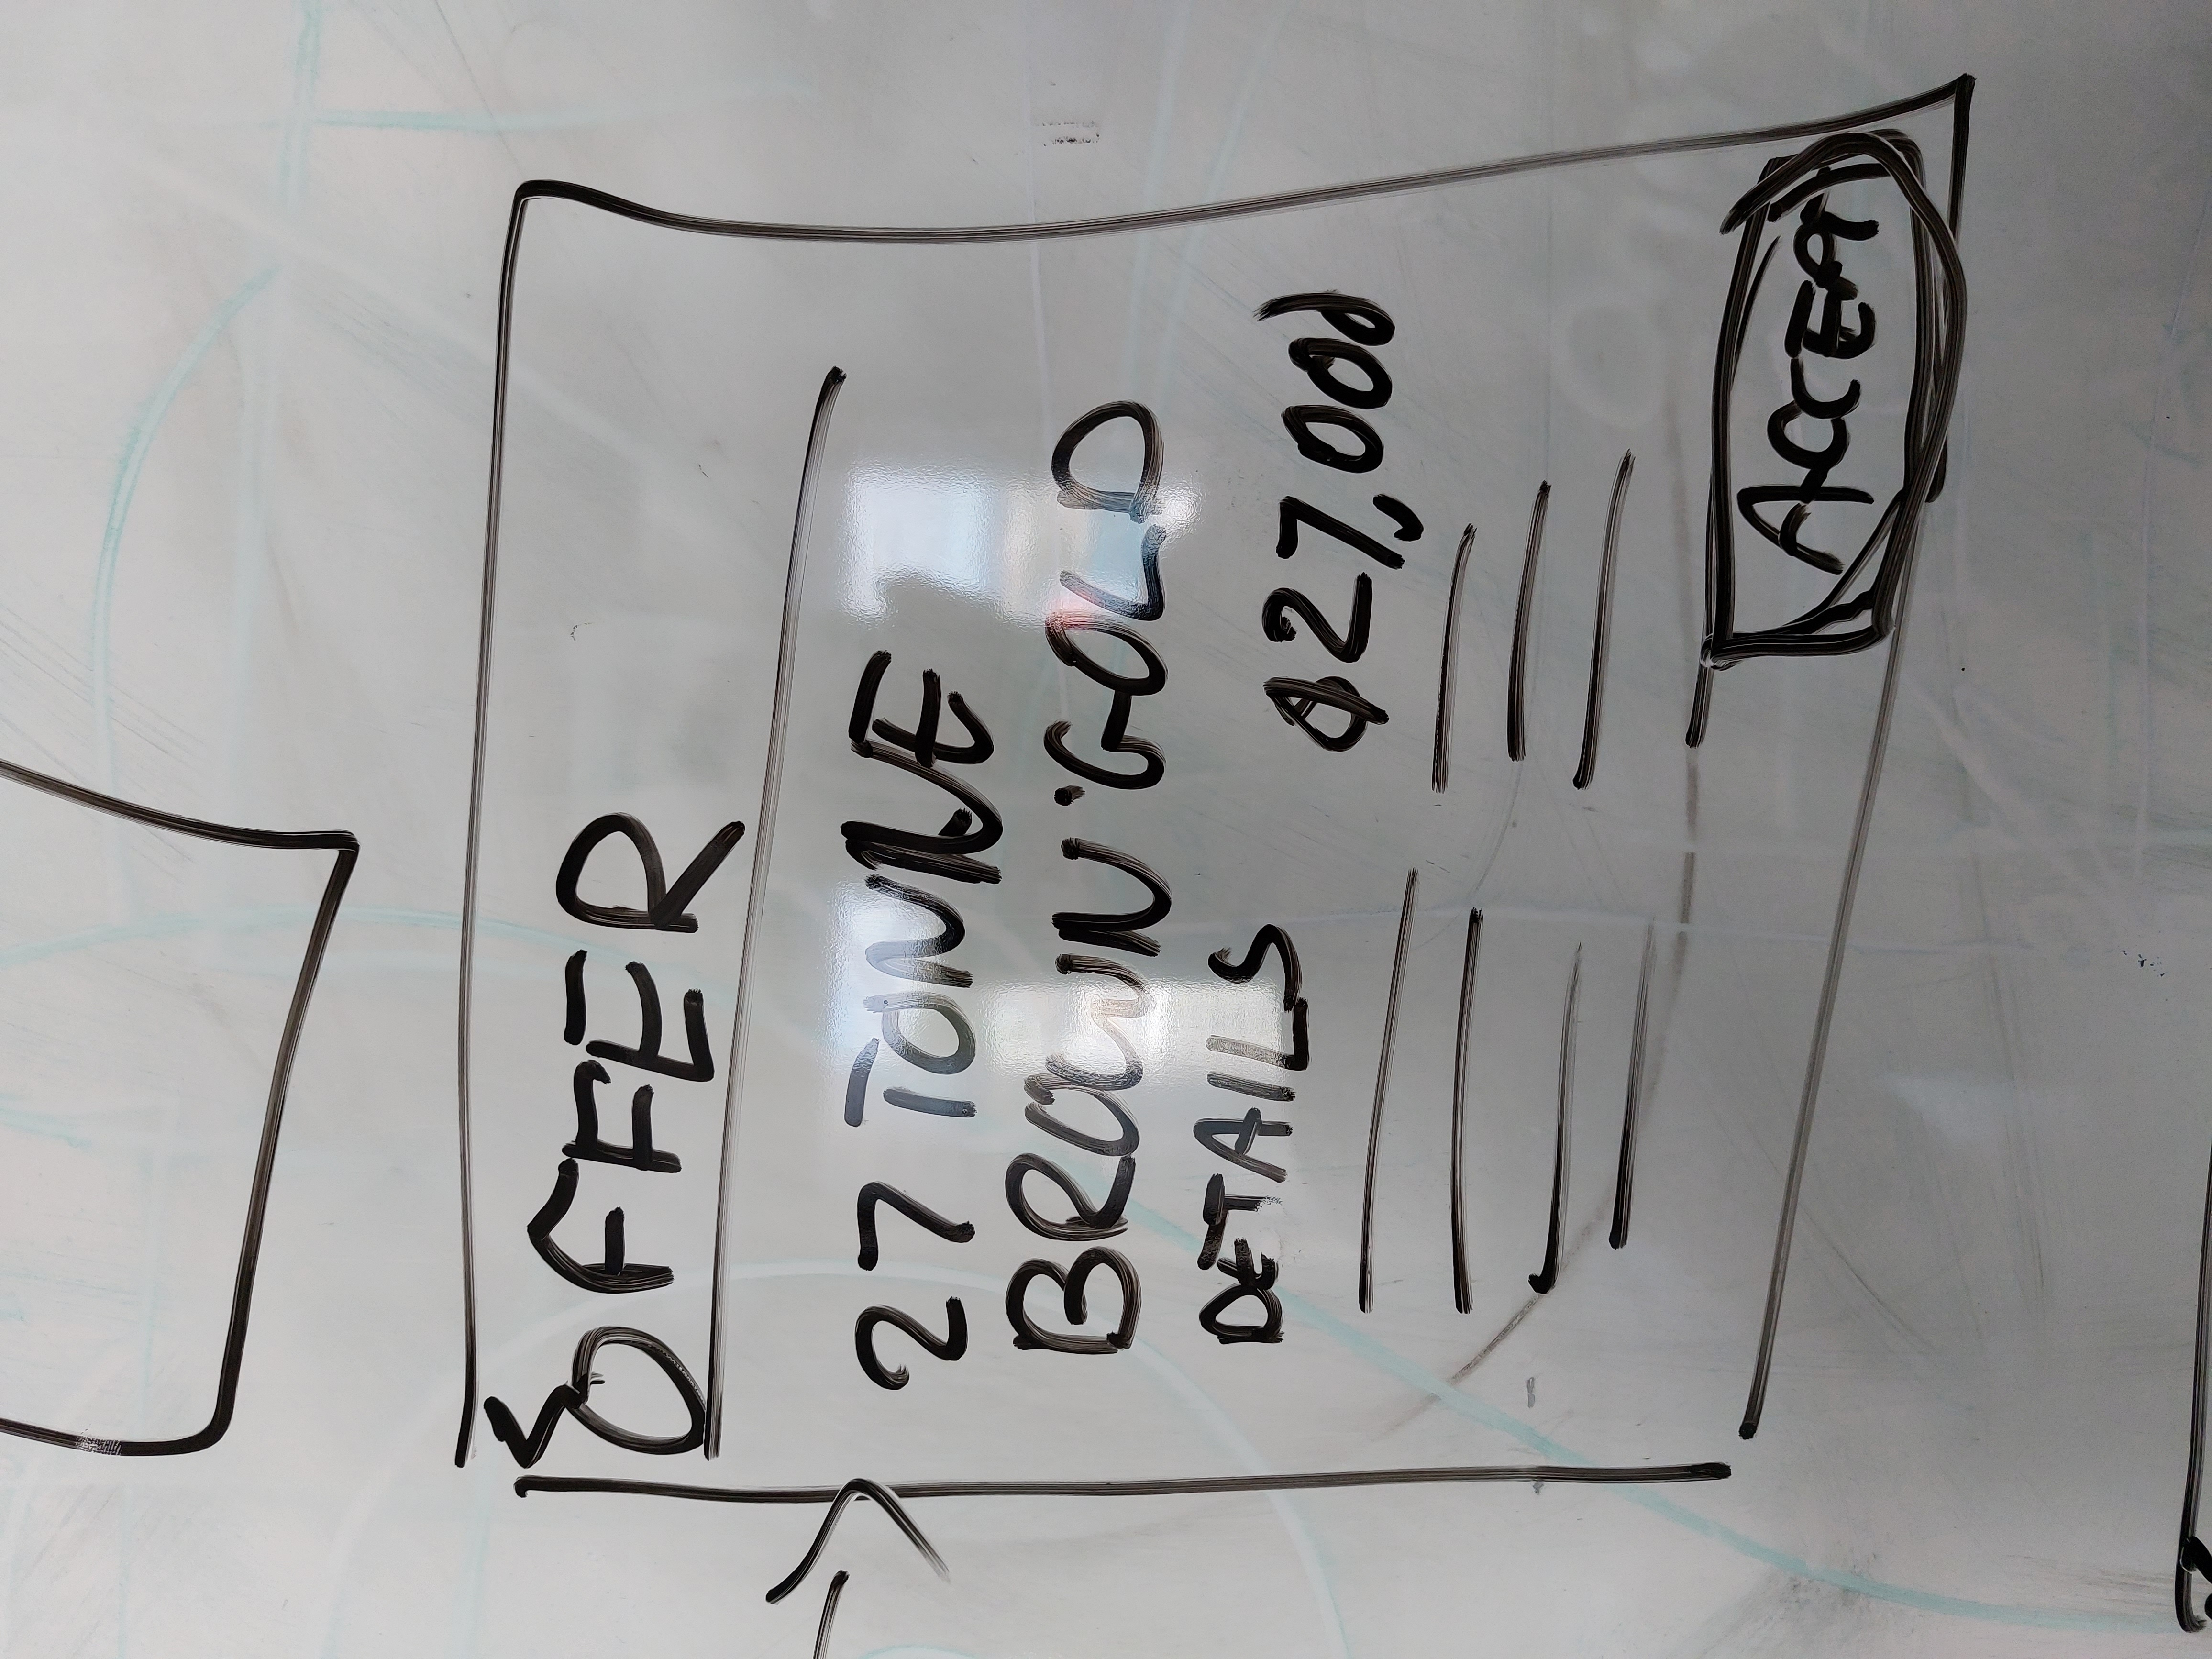 OFFER
27 TONNE
BROWN GOLD
DETAILS
$27,000
ACCEPT